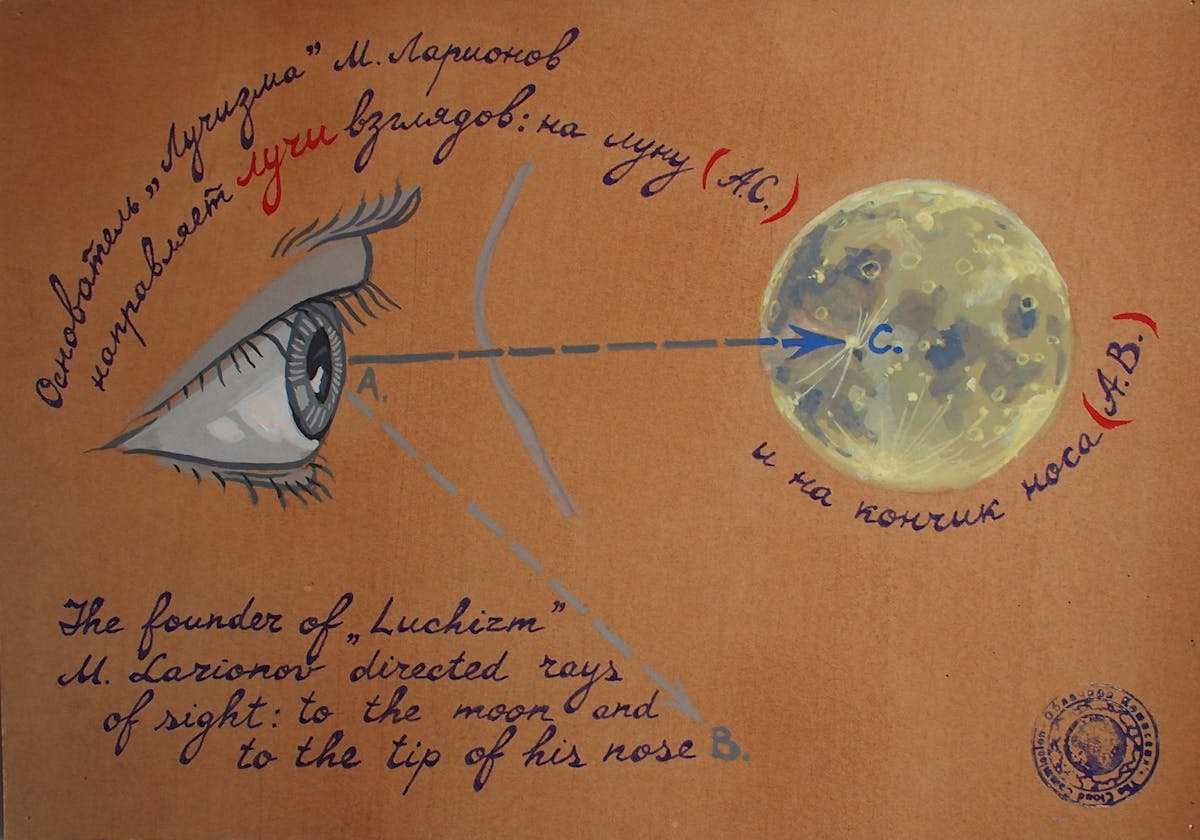 Основатель „Лучизма” М. Ларионов
направляет лучи взглядов: на луну (А.С.)
А.
С.
и на кончик носа (А.В.)
The founder of „Luchizm”
M. Larionov directed rays
of sight: to the moon and
to the tip of his nose В.
Облачная Комиссия · The Cloud Commission